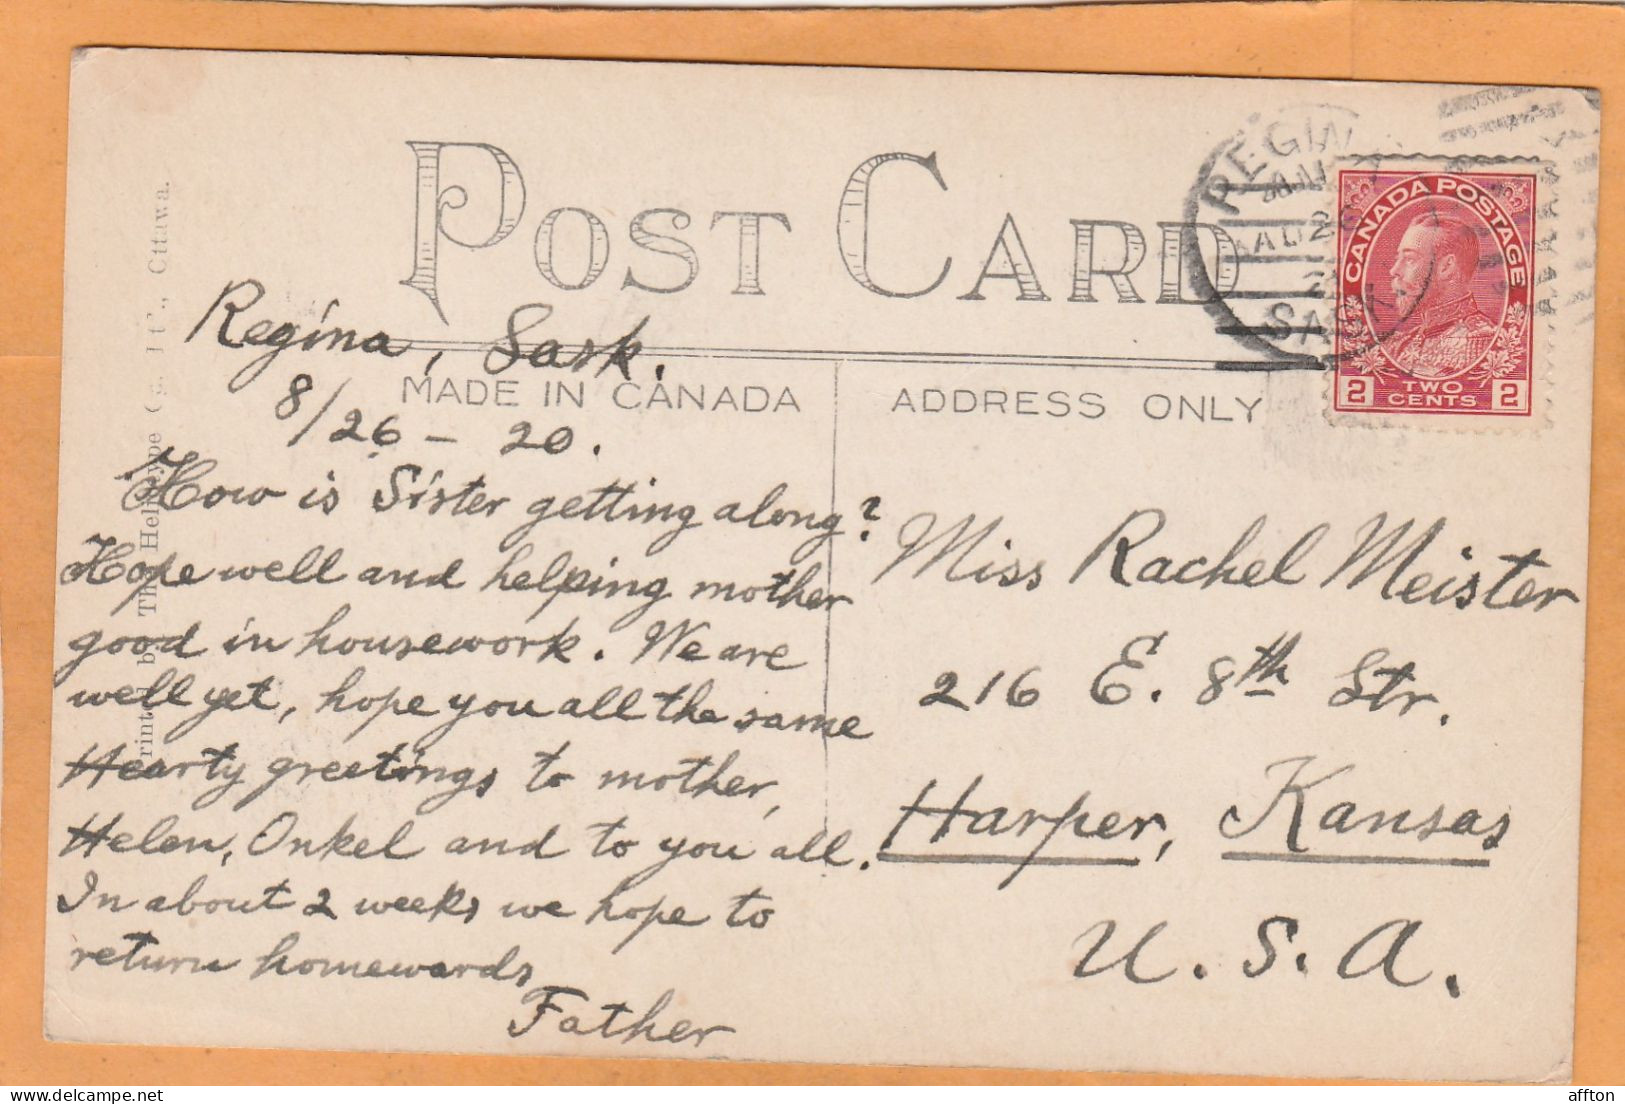 POST CARD
MADE IN CANADA
ADDRESS ONLY
SASK.
CANADA POSTAGE
2 TWO CENTS 2
Regina, Sask.
8/26 – 20.
How is Sister getting along?
Hope well and helping mother
good in housework. We are
well yet, hope you all the same
Hearty greetings to mother,
Helen, Onkel and to you all.
In about 2 weeks we hope to
return homewards,
Father
Miss Rachel Meister
216 E. 8th Str.
Harper, Kansas
U. S. A.
Ottawa.
affton